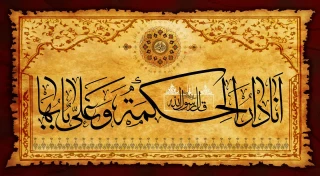 قال رسول الله
أنا دار الحكمة وعلي بابها